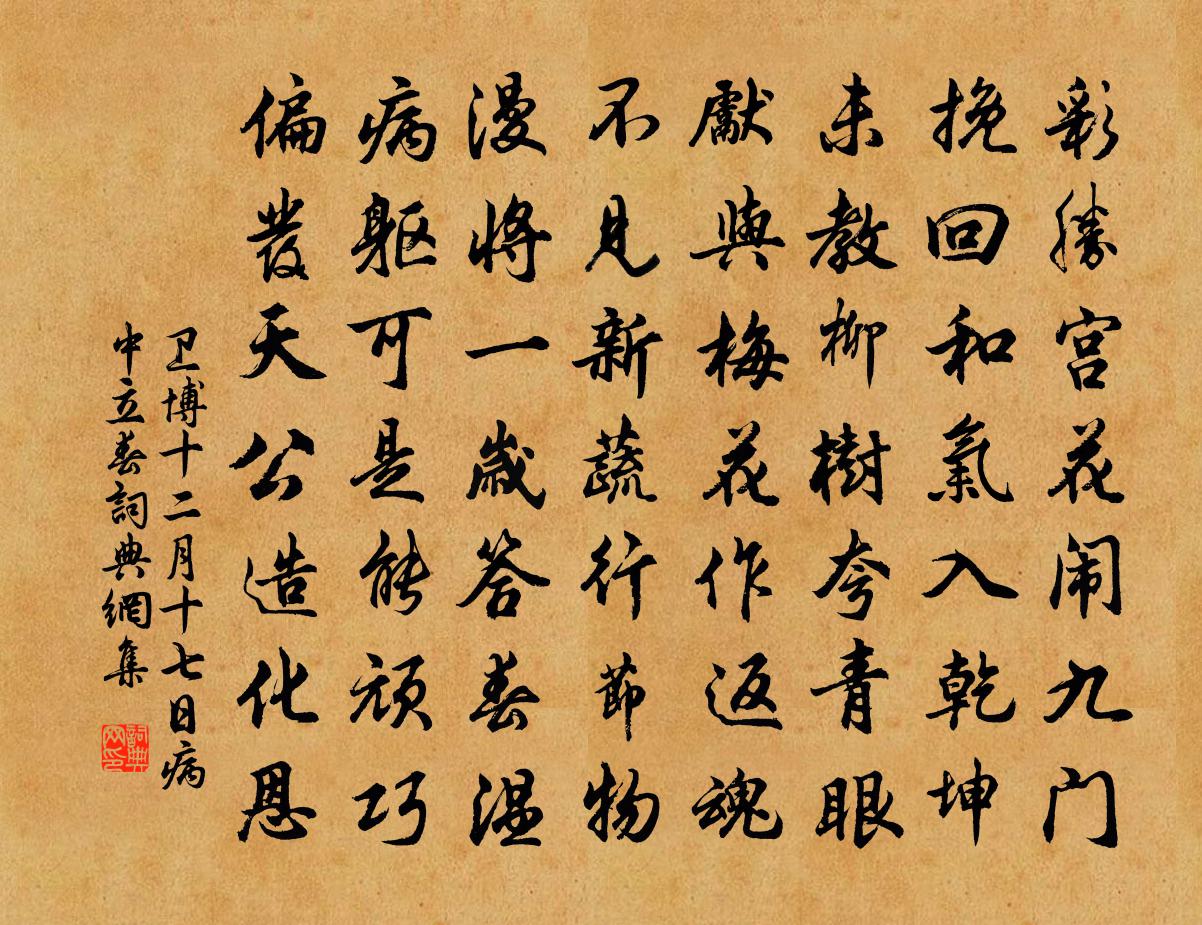 彩勝宫花闹九门
挽回和氣入乾坤
未教柳樹夸青眼
獻與梅花作返魂
不見新蔬行節物
漫將一歲答春温
病躯可是能頑巧
偏發天公造化恩
卫博十二月十七日病
中立春詞典網集
詞典网印